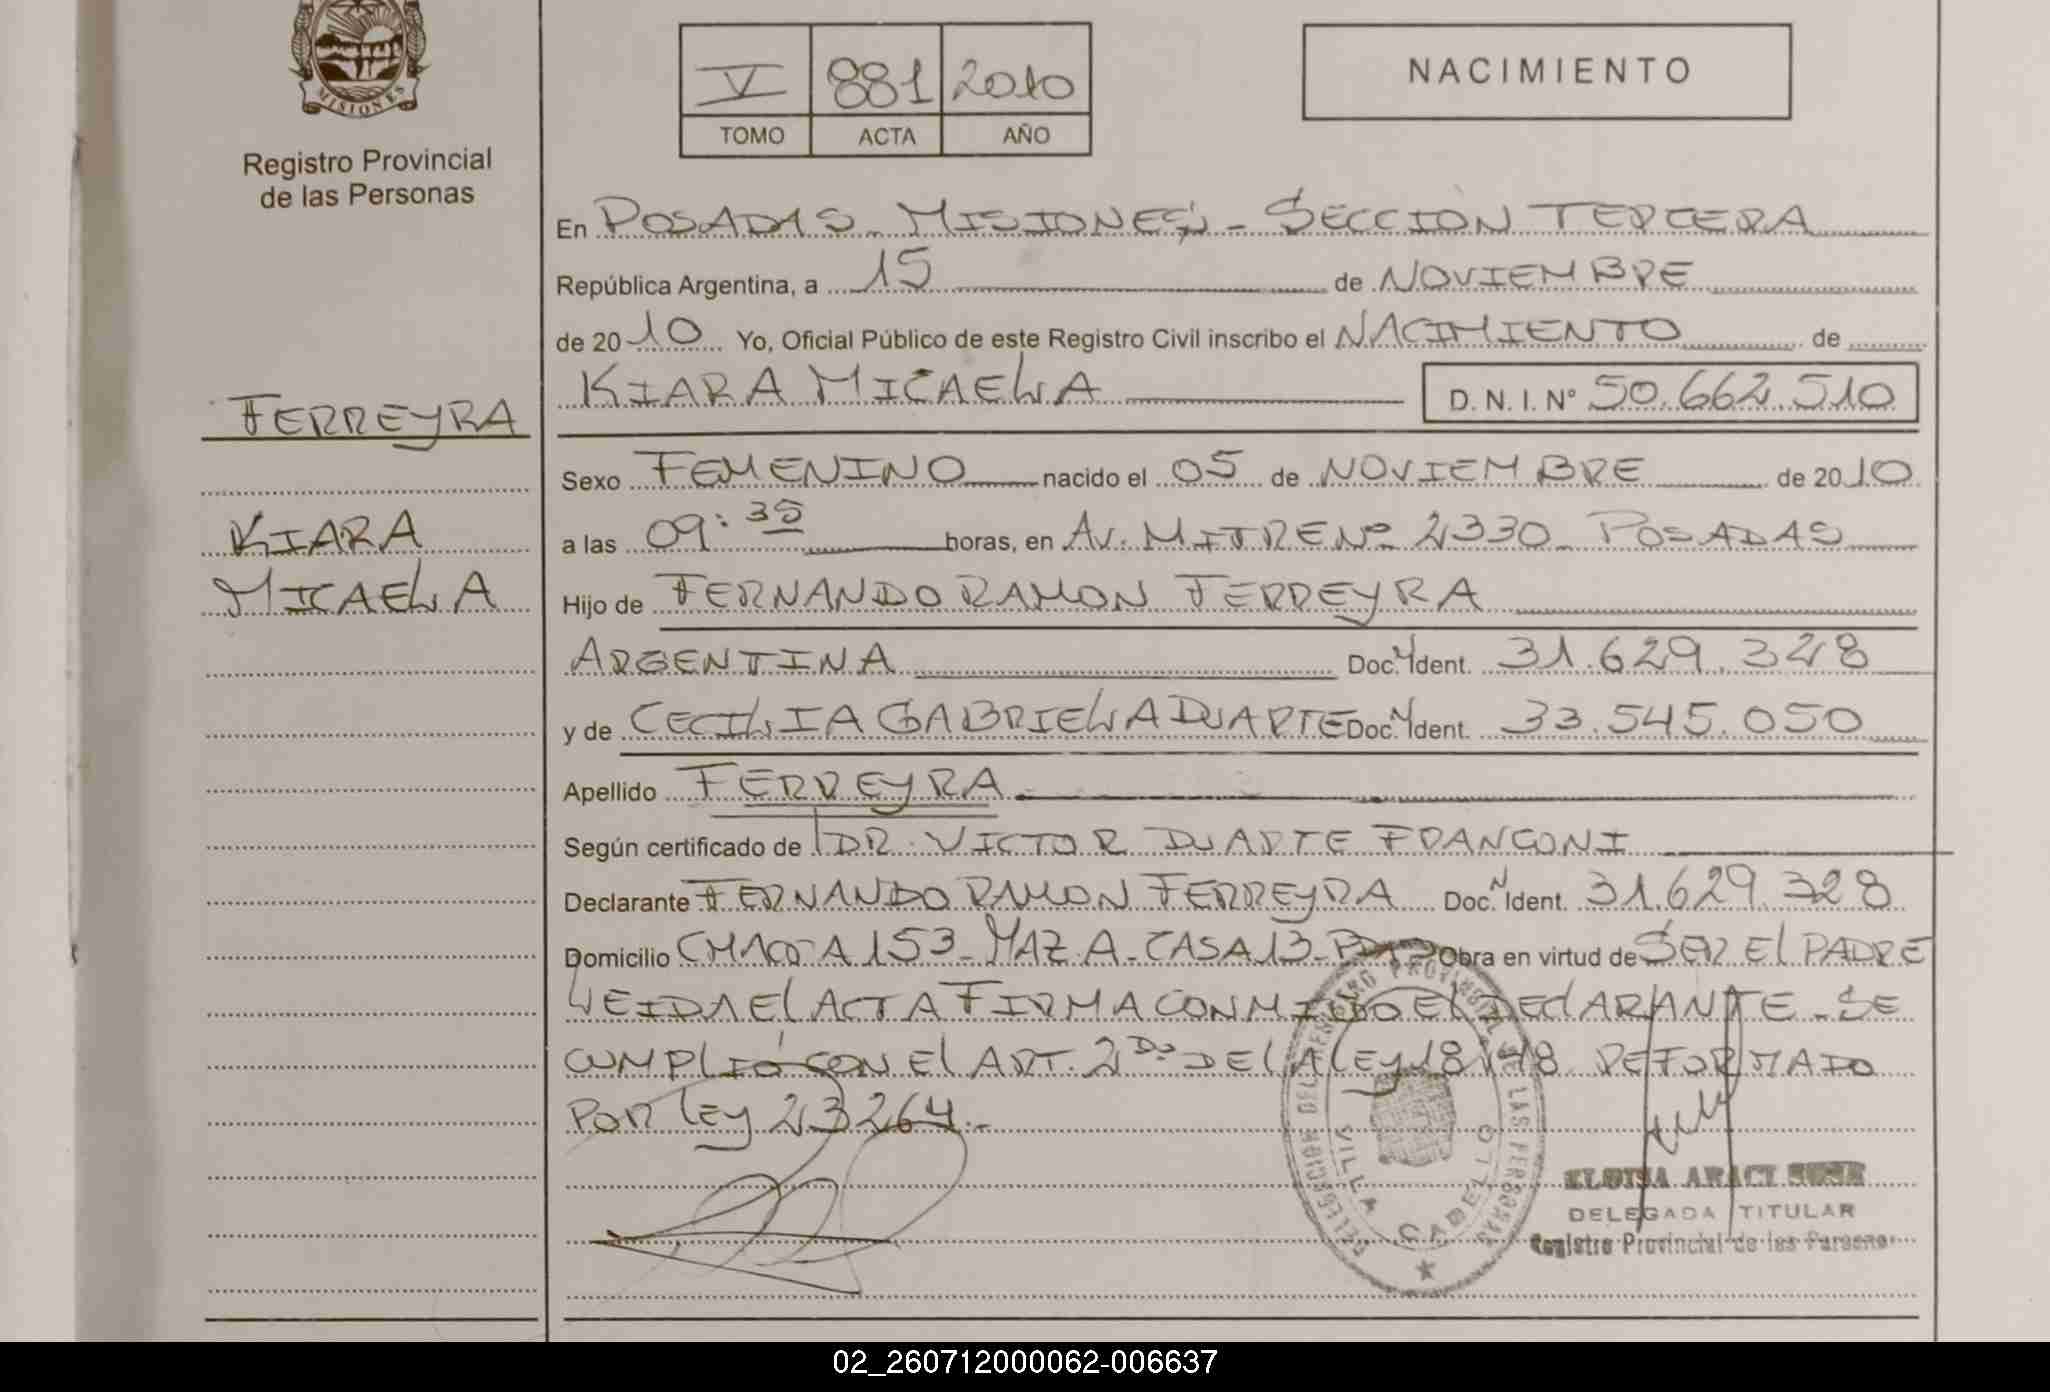 MISIONES
Registro Provincial
de las Personas
V 881 2010
TOMO ACTA AÑO
NACIMIENTO
En POSADAS - MISIONES - SECCION TERCERA
República Argentina, a 15 de NOVIEMBRE
de 2010 Yo, Oficial Público de este Registro Civil inscribo el NACIMIENTO de
KIARA MICAELA D.N.I. Nº 50.662.510
FERREYRA
KIARA
MICAELA
Sexo FEMENINO nacido el 05 de NOVIEMBRE de 2010
a las 09:35 horas, en Av. MITRE Nº 2330 - POSADAS
Hijo de FERNANDO RAMON FERREYRA
ARGENTINA Doc. N Ident. 31.629.328
y de CECILIA GABRIELA DUARTE Doc. N Ident. 33.545.050
Apellido FERREYRA
Según certificado de DR. VICTOR DUARTE FRANCONI
Declarante FERNANDO RAMON FERREYRA Doc. N Ident. 31.629.328
Domicilio CHACRA 153 - MAZ A - CASA 13 - Obra en virtud de SER El PADRE
LEIDA El ACTA FIRMA CONMIGO El DEClARANTE - SE
CUMPLIÓ CON El ART. 2do DE lA lEy 18248 REFORMADO
POR lEy 23264.-
DELEGACION DEL REGISTRO PROVINCIAL DE LAS PERSONAS
VILLA CABELLO
ELOISA ARACI
DELEGADA TITULAR
Registro Provincial de las Personas
02_260712000062-006637